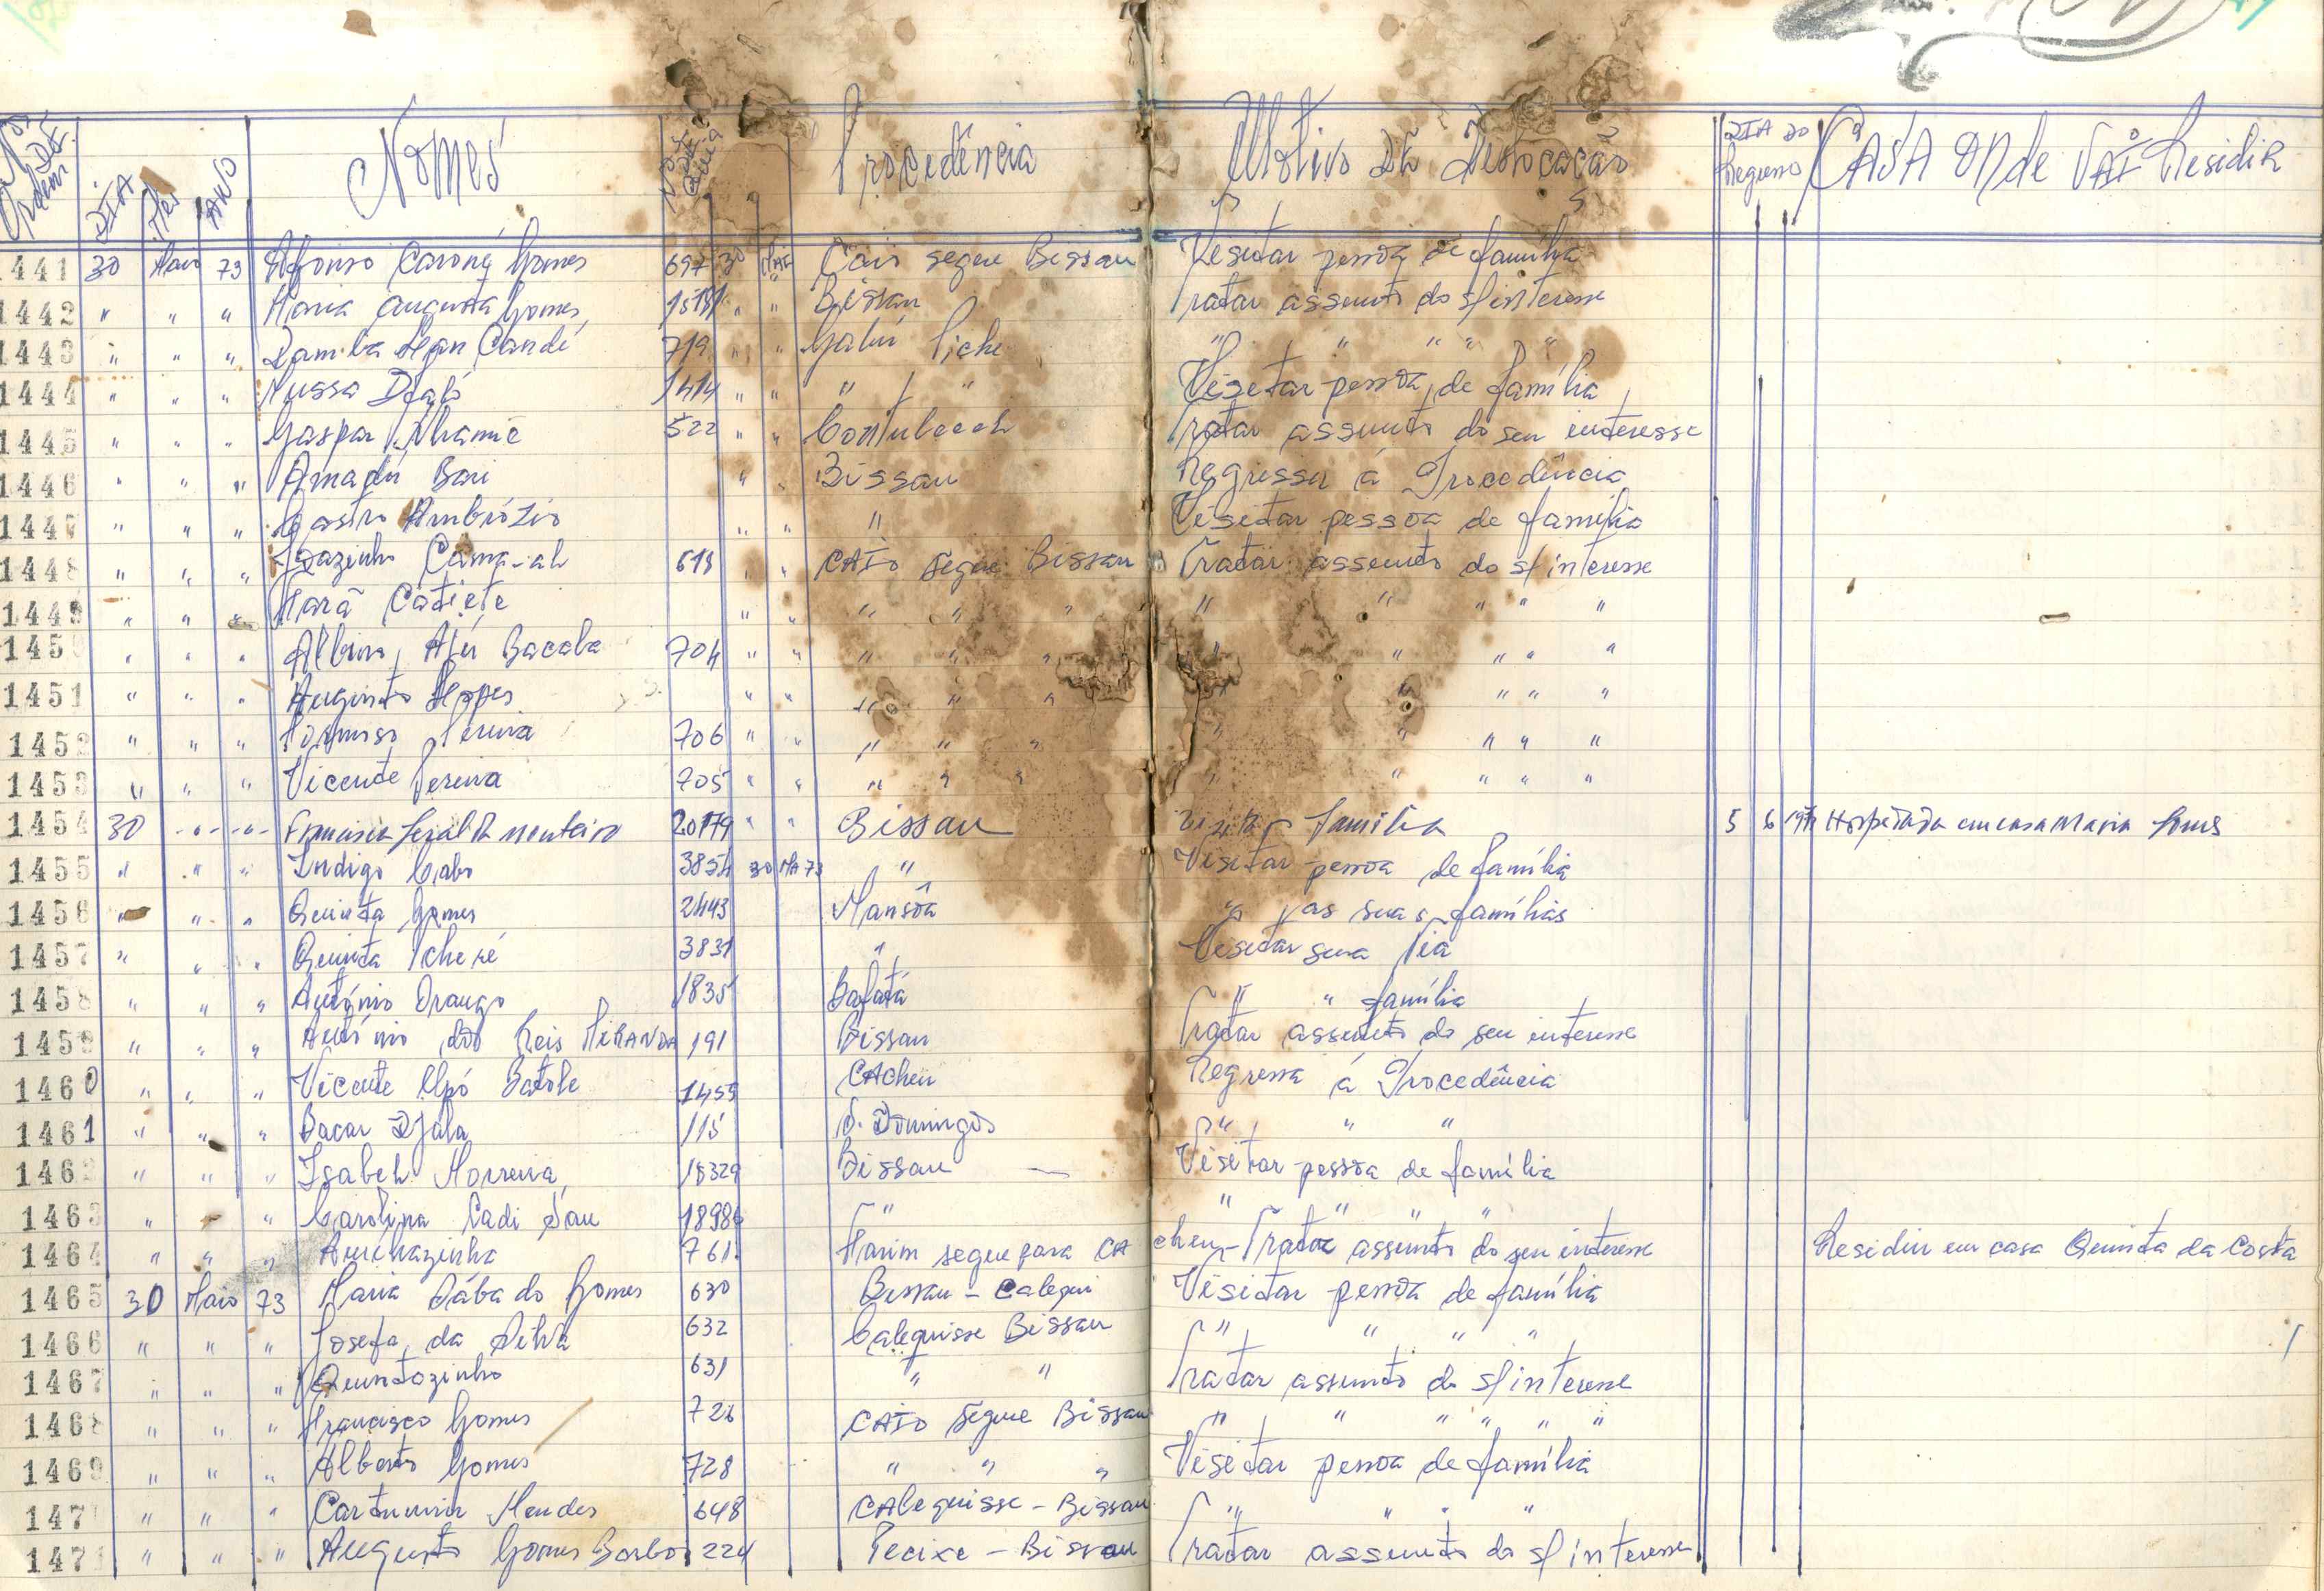 Nos de Ordem DIA Mês ANO Nomes Nº de Guia Procedência Motivo da Deslocação DIA DO Regresso CASA Onde VAI Residir
1441 30 Maio 73 Afonso Caroné Gomes 697 30 MAI Caió segue Bissau Visitar pessoa de família
1442 " " " Maria Augusta Gomes " " Bissau Tratar assunto do s/interesse
1443 " " " Candé 719 " " Gabú Piche " " " " "
1444 " " " Mussa Djaló 1414 " " " " Visetar pessoa de família
1445 " " " Gaspar Nhamé 522 " " Contuboel Tratar assunto do seu interesse
1446 " " " Amadú Bari " " Bissau Regressa á Procedência
1447 " " " Castro Ambrózio " " " Visitar pessoa de família
1448 " " " 618 " " CAIÓ segue Bissau Tratar assunto do s/interesse
1449 " " " " " " " " " " " " "
145 " " " Albino Bacaba 704 " " " " " " " " " "
1451 " " " Augusto Lopes " " " " " " " " " "
1452 " " " Formoso Pereira 706 " " " " " " " " " "
1453 " " " Vicente Pereira 705 " " " " " " " " " "
1454 30 " " Monteiro 20179 " " Bissau Visita família 5 6 Hospedada em casa Maria Gomes
1455 " " " Indigo Cabo 3854 30 MA 73 " Visetar pessoa de família
1456 " " " Quinta Gomes 2443 Mansôa " as suas famílias
1457 " " " Quinta Icheré 3831 " Visetar sua Tia
1458 " " " António Orango 1835 Bafatá " " família
1459 " " " António dos Reis MIRANDA 191 Bissau Tratar assunto do seu interesse
1460 " " " Vicente Upó Batole 1459 CAcheu Regressa á Procedência
1461 " " " Bacar Djala 115 S. Domingos " " "
146 " " " Isabel Morreira 18329 Bissau — Visitar pessoa de família
1463 " " " Carolina Cadi Sau 18986 " " " " "
1464 " " " 761 Farim segue para CAcheu - Tratar assunto do seu interesse Residir em casa Quinta da Costa
1465 30 Maio 73 Maria Sábado Gomes 630 Bissau - Calequi Visitar pessoa de família
1466 " " " Josefa da Silva 632 Calequisse Bissau " " " "
1467 " " " Quintozinho 631 " " Tratar assunto do s/interesse
1468 " " " Francisco Gomes 726 CAIÓ segue Bissau " " " " " "
1469 " " " Alberto Gomes 728 " " " Visetar pessoa de família
147 " " " Mendes 648 CAlequisse - Bissau " " " "
147 " " " Augusto Gomes Barbos 224 Pecixe - Bissau Tratar assunto do s/interesse